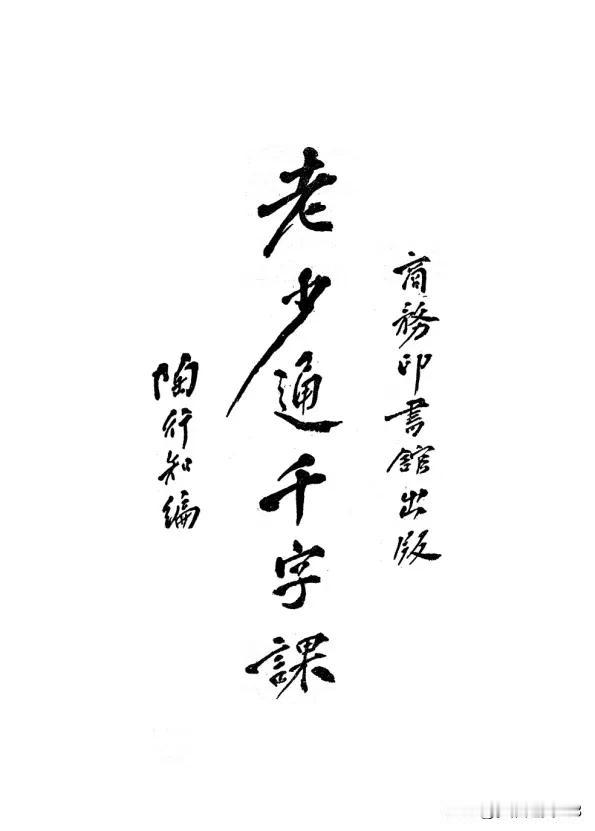 商務印書館出版
老少通千字課
陶行知編